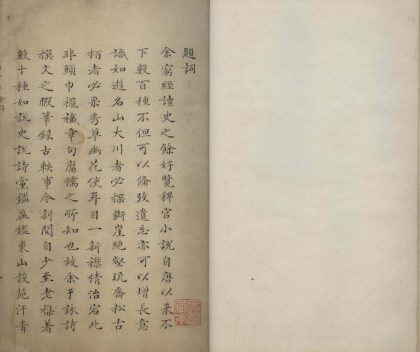 題詞
余窮經讀史之餘好覽稗官小說自唐以來不
下數百種不但可以備攷遺忘亦可以增長意
識如遊名山大川者必探斷崖絕壑玩喬松古
栢者必采秀草幽花使耳目一新襟情怡宕此
非頭巾襶章句腐儒之所知也故余于詠詩
撰文之暇筆錄古軼事今新聞自少至老襍著
數十種如說史說詩黨鑑盈鑑東山談苑汗青